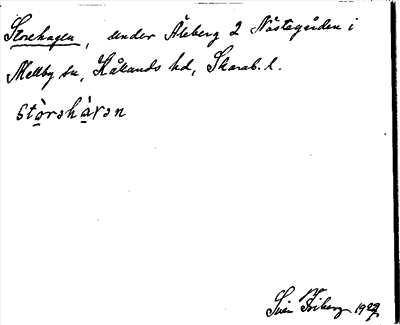 Storhagen, under Åleberg 2 Nästegården i
Mellby sn, Kållands hd, Skarab. l.
stòrəhàvən
Sven Friberg 1927